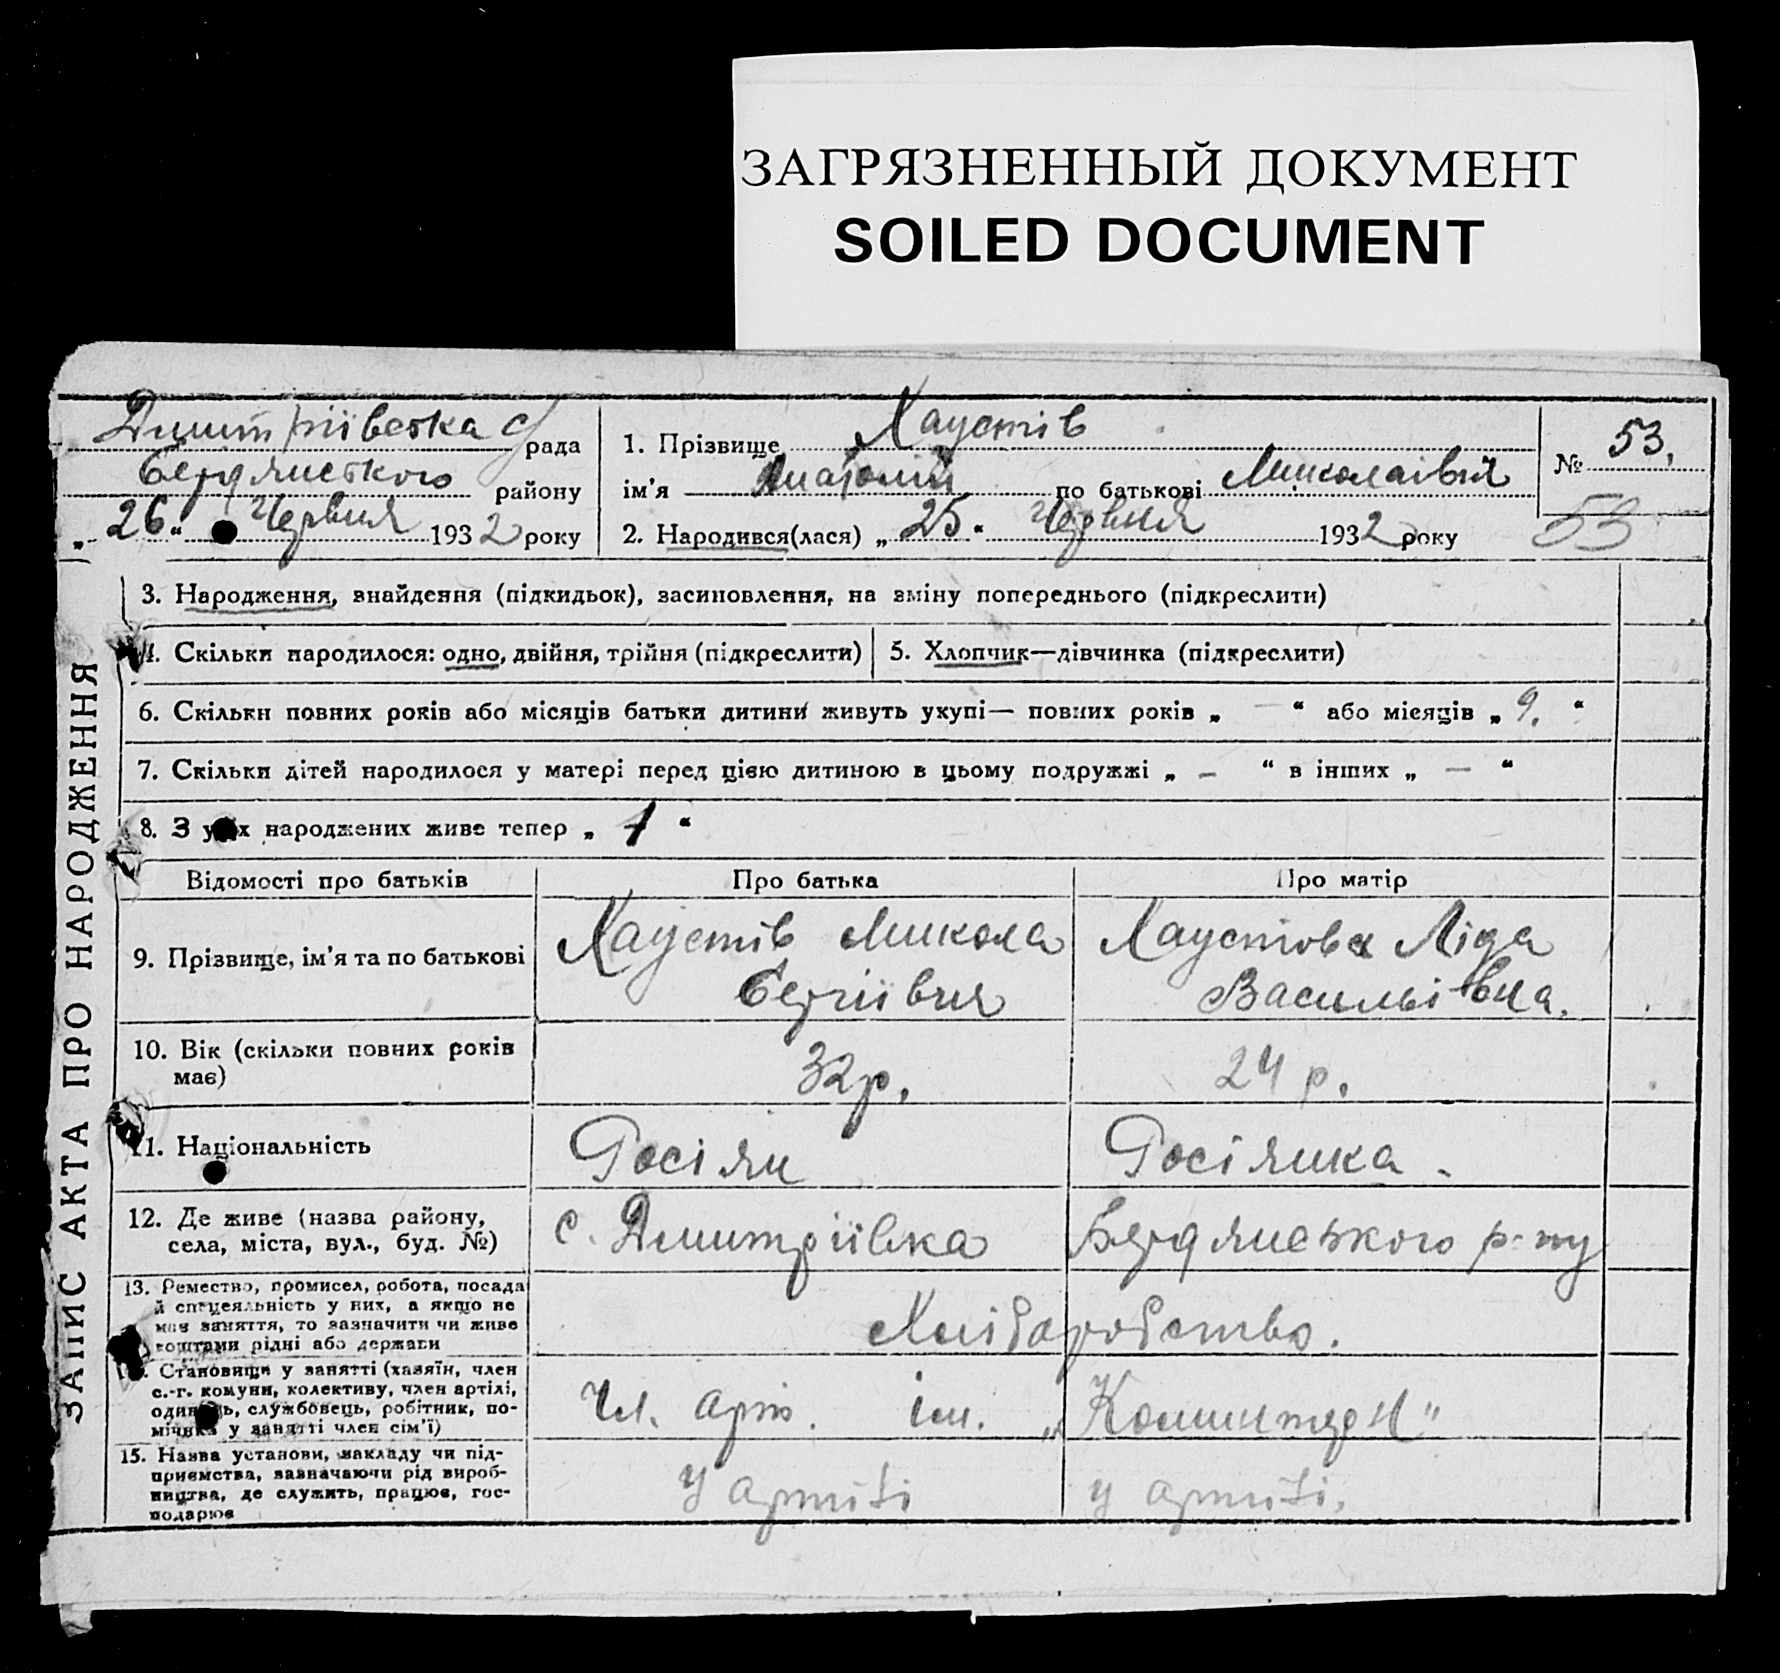 ЗАГРЯЗНЕННЫЙ ДОКУМЕНТ
SOILED DOCUMENT
ЗАПИС АКТА ПРО НАРОДЖЕННЯ
Дмитріївська с/рада
Бердянського району
„26“ Червня 1932 року
1. Прізвище Хаустів
ім'я Анатолій по батькові Миколаївич
2. Народився(лася) „25“ Червня 1932 року
№ 53.
53
3. Народження, знайдення (підкидьок), засиновлення, на зміну попереднього (підкреслити)
4. Скільки народилося: одно, двійня, трійня (підкреслити)
5. Хлопчик—дівчинка (підкреслити)
6. Скільки повних років або місяців батьки дитини живуть укупі— повних років „ — “ або місяців „ 9. “
7. Скільки дітей народилося у матері перед цією дитиною в цьому подружжі „ – “ в інших „ — “
8. З усіх народжених живе тепер „ 1 “
Відомості про батьків
Про батька
Про матір
9. Прізвище, ім'я та по батькові
Хаустів Микола
Сергіївич
Хаустова Ліда
Васильівна.
10. Вік (скільки повних років
має)
32р.
24 р.
11. Національність
Росіян
Росіянка.
12. Де живе (назва району,
села, міста, вул., буд. №)
с. Дмитріївка Бердянського р-ну
13. Ремество, промисел, робота, посада
й спецеяльність у них, а якщо не
має заняття, то зазначити чи живе
коштами рідні або держави
Хліборобство.
14. Становище у занятті (хазяїн, член
с.-г. комуни, колективу, член артілі,
одинець, службовець, робітник, по-
мічник у занятті член сім'ї)
Чл. арт. ім. „Коминтерн"
15. Назва установи, закладу чи під-
приємства, зазначаючи рід вироб-
ництва, де служить, працює, гос-
подарює
У артілі
у артілі.